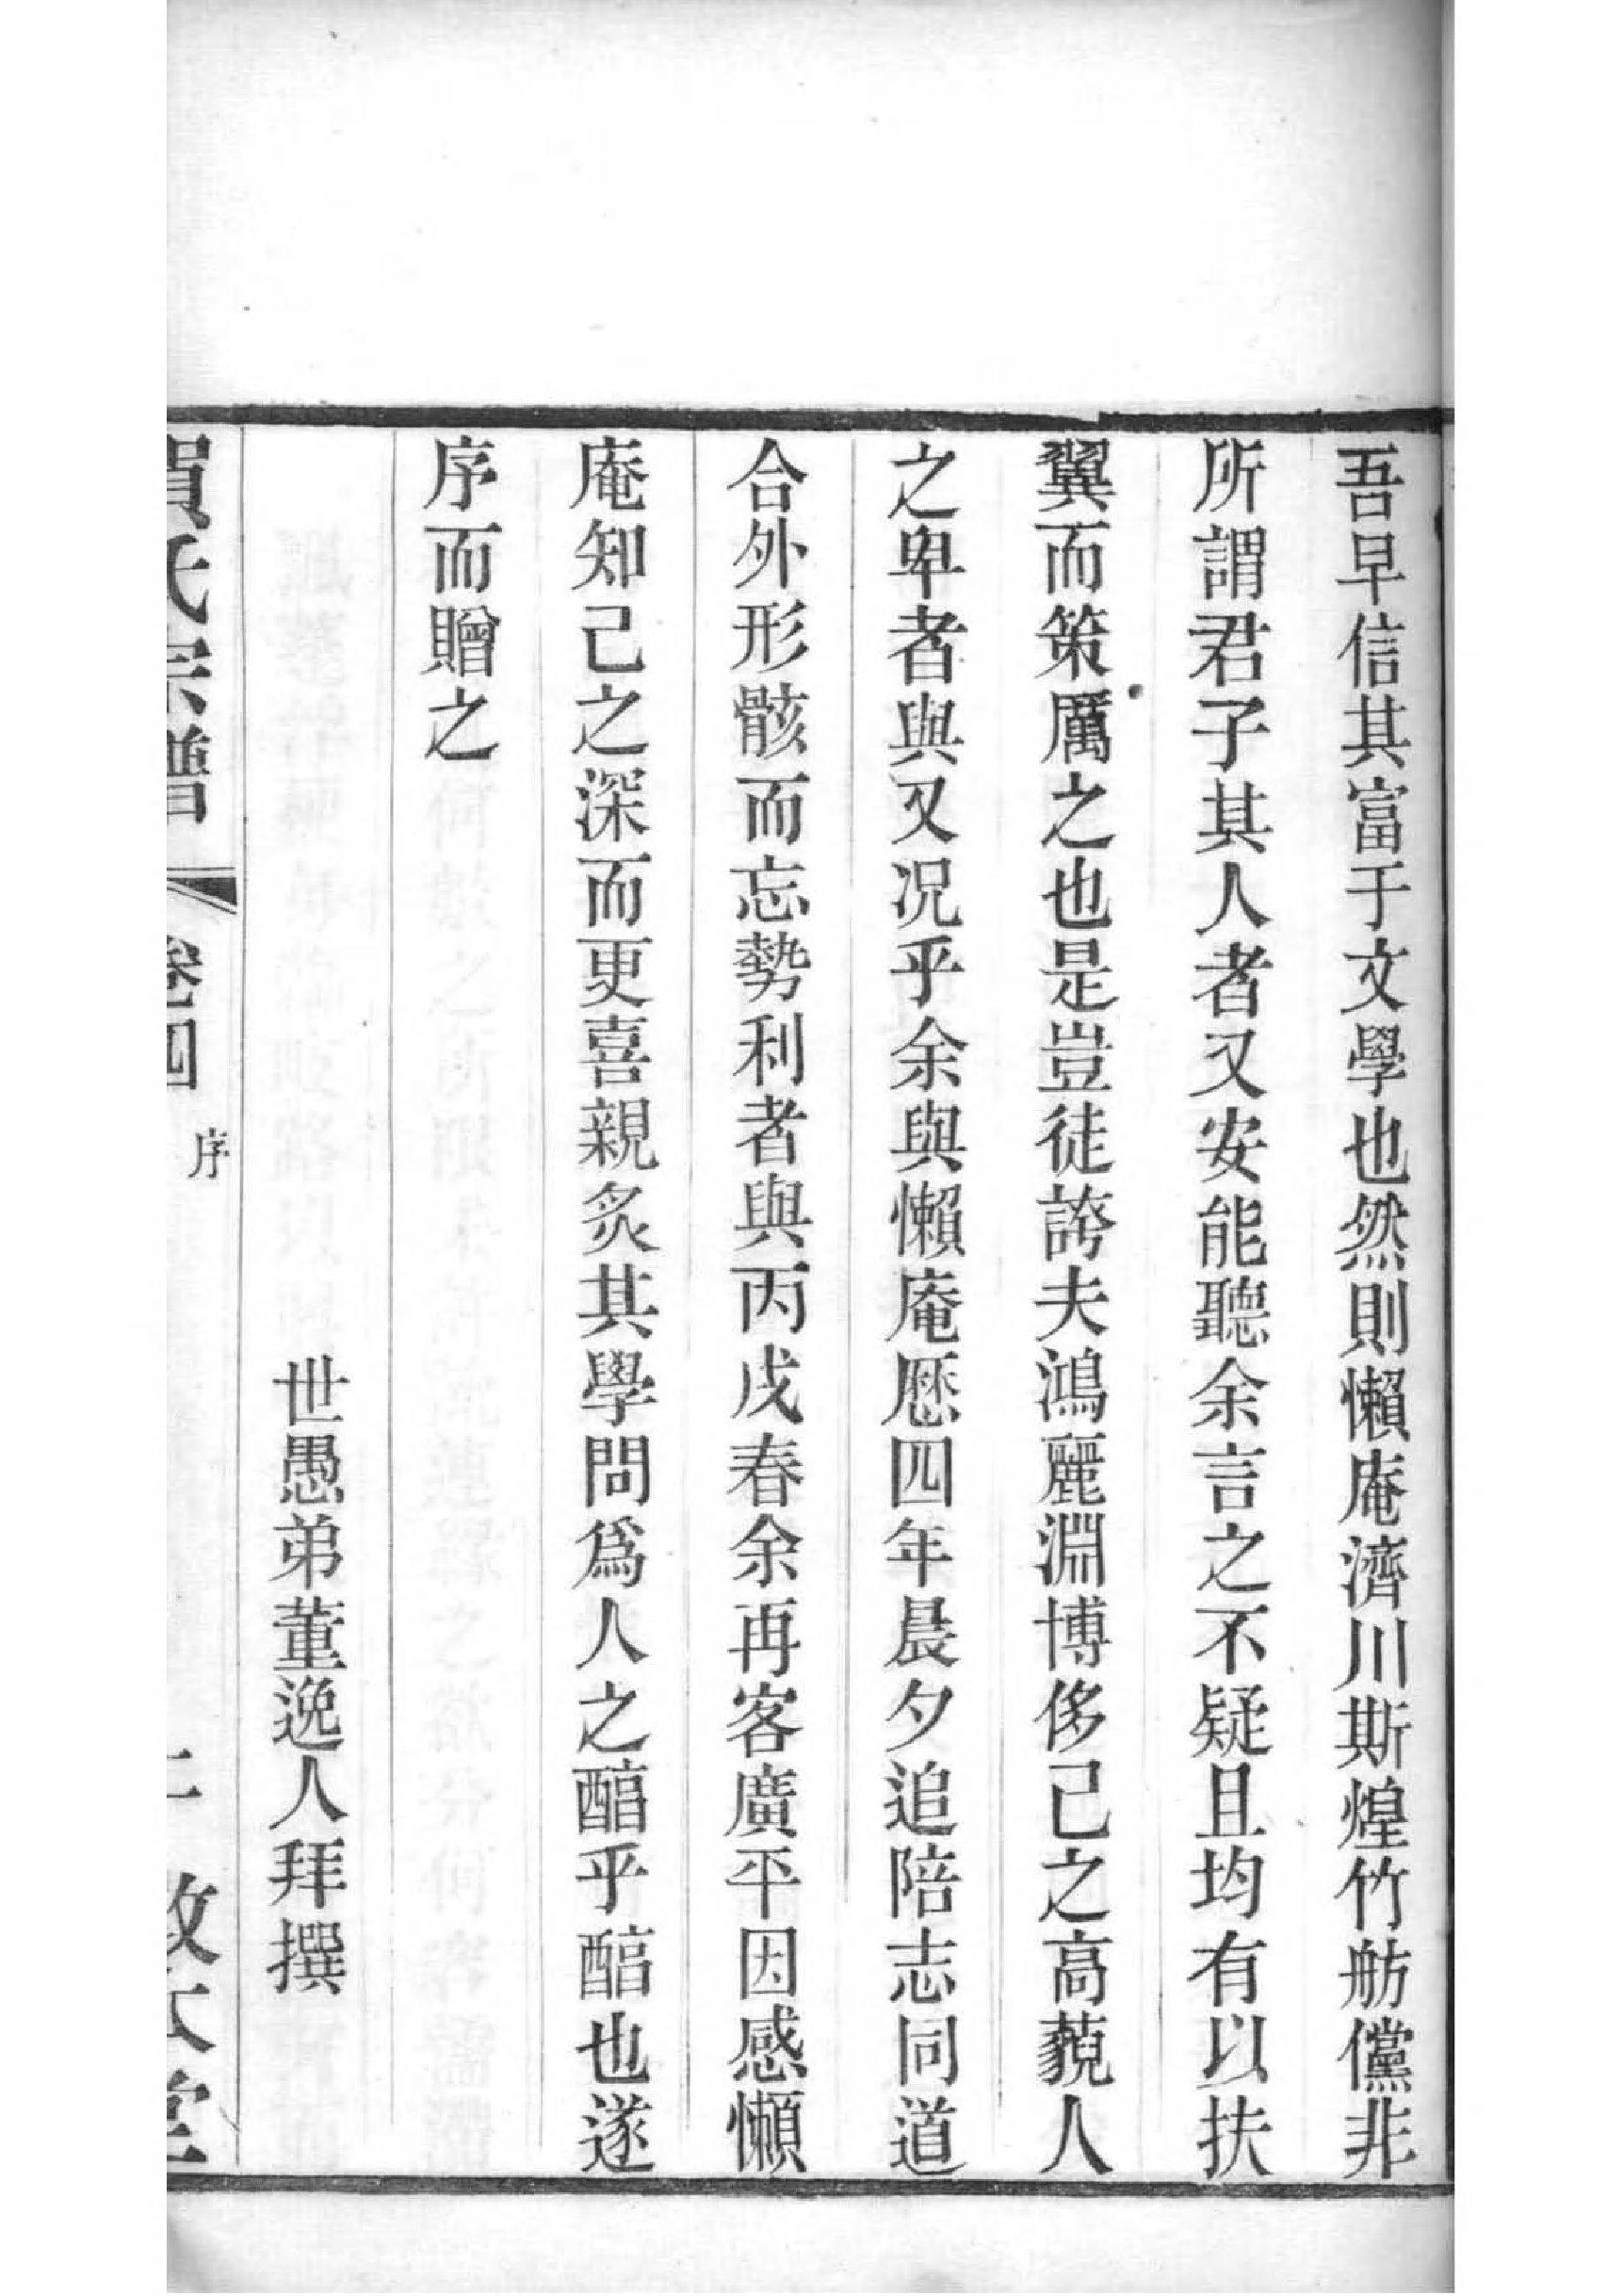 吾早信其富于文學也然則懶庵濟川斯煌竹舫儻非
所謂君子其人者又安能聽余言之不疑且均有以扶
翼而策厲之也是豈徒誇夫鴻麗淵博侈己之高藐人
之卑者與又况乎余與懶庵歷四年晨夕追陪志同道
合外形骸而忘勢利者與丙戌春余再客廣平因感懶
庵知己之深而更喜親炙其學問爲人之醕乎醕也遂
序而贈之
世愚弟董逸人拜撰
賀氏宗譜 卷四 序
敦本堂